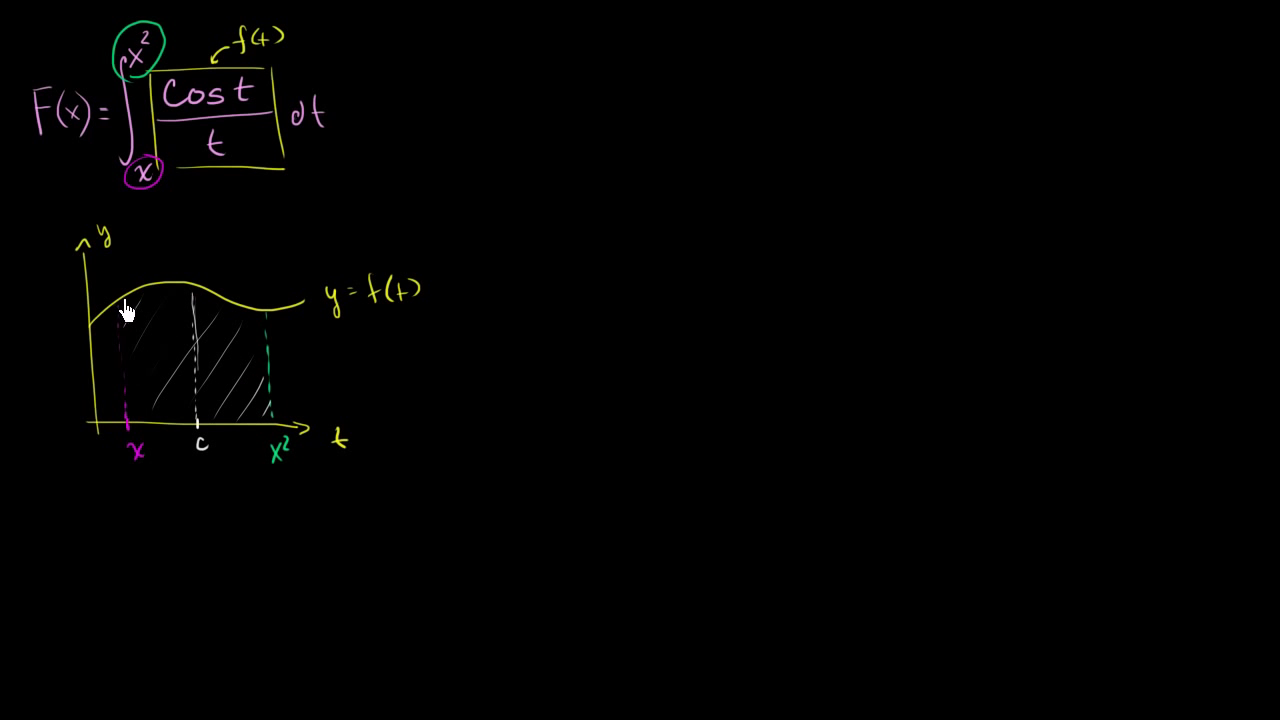 F(x) = ∫ₓ^x² cos t / t dt
f(t)
y
y = f(t)
x
c
x²
t